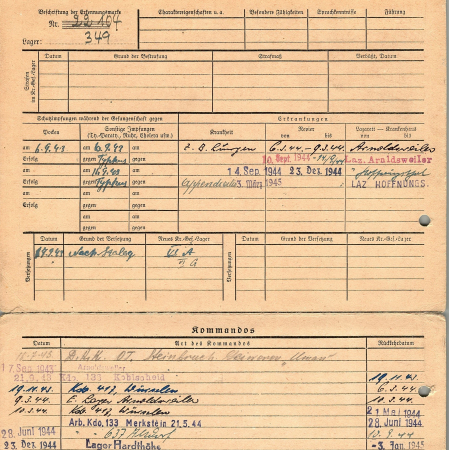 Beschriftung der Erkennungsmarke
Nr. 22 164
Lager: 349
Charaktereigenschaften u.a.
Besondere Fähigkeiten
Sprachkenntnisse
Führung
Strafen im Kr.-Gef.-Lager
Datum
Grund der Bestrafung
Strafmaß
Verbüßt, Datum
Schutzimpfungen während der Gefangenschaft gegen
Erkrankungen
Pocken
Sonstige Impfungen
(Ty.-Paraty., Ruhr, Cholera usw.)
Krankheit
Revier
von bis
Lazarett — Krankenhaus
von bis
am 6.9.43
am 6.9.43
gegen
am
gegen
Erfolg
gegen Typhus
6.3.44.-9.3.44. Arnoldsweiler
10. Sept. 1944
Laz. Arnoldsweiler
am
am 16.9.43
14. Sep. 1944
23. Dez. 1944
Erfolg
gegen Typhus
3. März 1945
LAZ HOFFNUNGS
am
am
Erfolg
gegen
am
am
gegen
Versetzungen
Datum
Grund der Versetzung
Neues Kr.-Gef.-Lager
Datum
Grund der Versetzung
Neues Kr.-Gef.-Lager
Nach Stalag
VI A
VI G
Kommandos
Datum
Art des Kommandos
Rückkehrdatum
17. Sep. 1943
Arnoldsweiler
Kdo. 133
19.11.43.
19.11.43.
Kdo. 417,
6.3.44
9.3.44.
E. Lager Arnoldsweiler
10.3.44.
10.3.44.
Kdo. 417,
21. Mai 1944
Arb. Kdo. 133 Merkstein 21.5.44
28. Juni 1944
28. Juni 1944
633
13.9.44
23. Dez. 1944
Lager Hardthöhe
-3. Jan. 1945